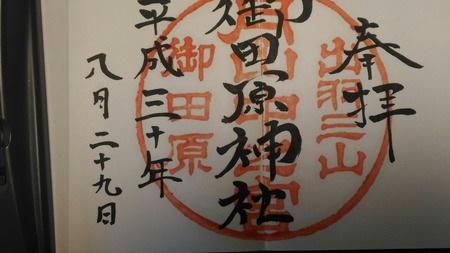 奉拝
出羽三山
御田原神社
御田原
平成三十年
八月二十九日